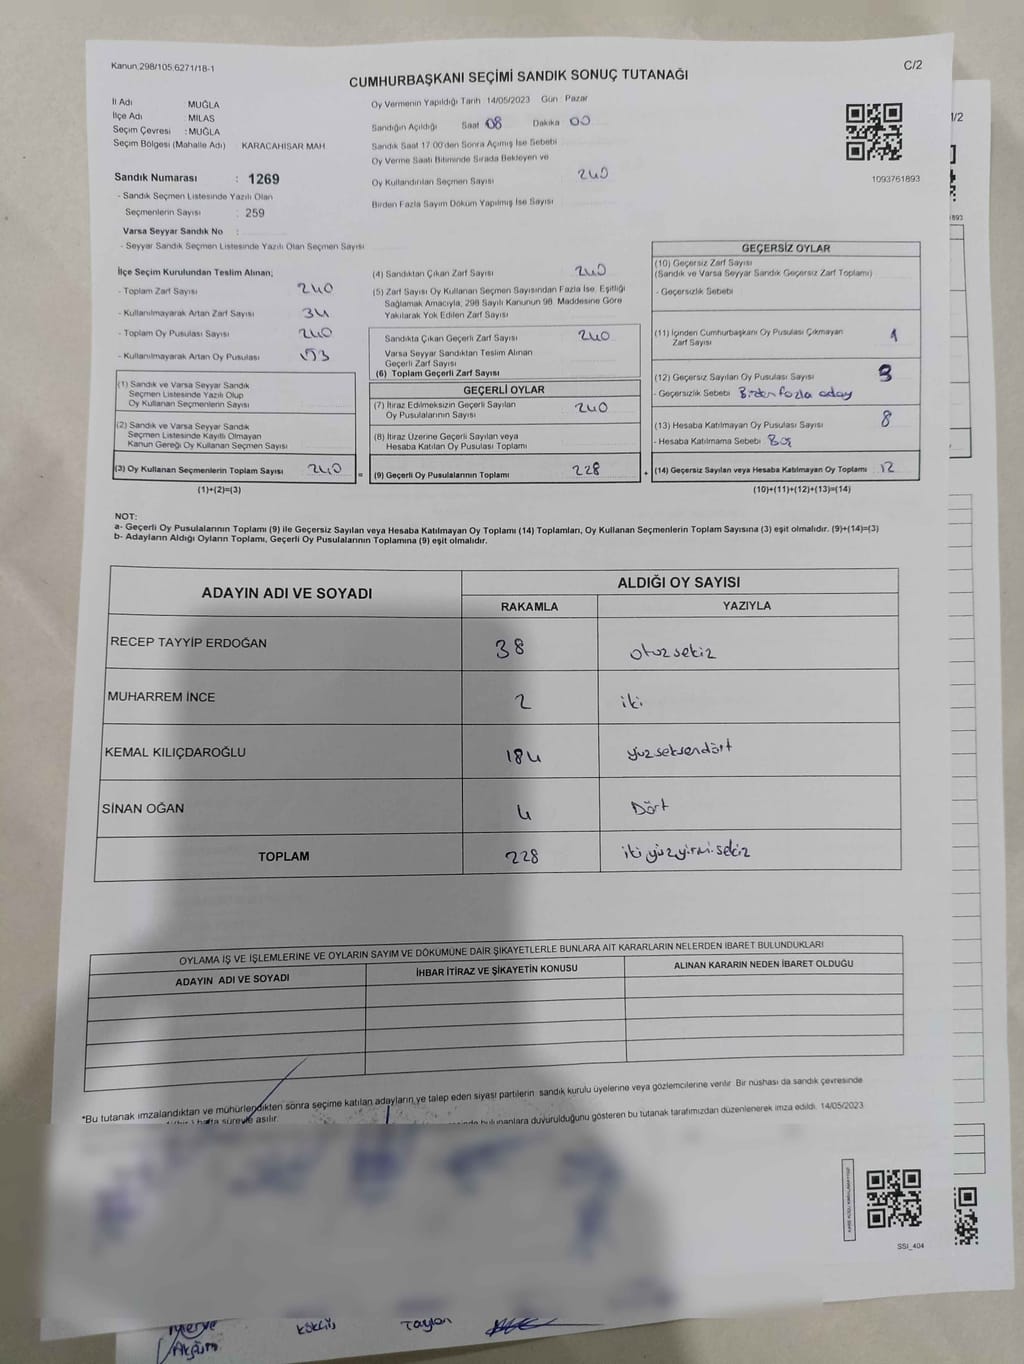 Kanun.298/105,6271/18-1
C/2
CUMHURBAŞKANI SEÇİMİ SANDIK SONUÇ TUTANAĞI
İl Adı : MUĞLA
İlçe Adı : MİLAS
Seçim Çevresi : MUĞLA
Seçim Bölgesi (Mahalle Adı) KARACAHİSAR MAH
Oy Vermenin Yapıldığı Tarih 14/05/2023 Gün Pazar
Sandığın Açıldığı Saat 08 Dakika 00
Sandık Saat 17:00'den Sonra Açılmış İse Sebebi
Oy Verme Saati Bitiminde Sırada Bekleyen ve
Oy Kullandırılan Seçmen Sayısı 240
Birden Fazla Sayım Döküm Yapılmış İse Sayısı
1093761893
Sandık Numarası : 1269
- Sandık Seçmen Listesinde Yazılı Olan
Seçmenlerin Sayısı : 259
Varsa Seyyar Sandık No :
- Seyyar Sandık Seçmen Listesinde Yazılı Olan Seçmen Sayısı
İlçe Seçim Kurulundan Teslim Alınan;
- Toplam Zarf Sayısı 240
- Kullanılmayarak Artan Zarf Sayısı 34
- Toplam Oy Pusulası Sayısı 240
- Kullanılmayarak Artan Oy Pusulası 153
(1) Sandık ve Varsa Seyyar Sandık
Seçmen Listesinde Yazılı Olup
Oy Kullanan Seçmenlerin Sayısı
(2) Sandık ve Varsa Seyyar Sandık
Seçmen Listesinde Kayıtlı Olmayan
Kanun Gereği Oy Kullanan Seçmen Sayısı
(3) Oy Kullanan Seçmenlerin Toplam Sayısı 240
(1)+(2)=(3)
(4) Sandıktan Çıkan Zarf Sayısı 240
(5) Zarf Sayısı Oy Kullanan Seçmen Sayısından Fazla İse, Eşitliği
Sağlamak Amacıyla, 298 Sayılı Kanunun 98. Maddesine Göre
Yakılarak Yok Edilen Zarf Sayısı
Sandıkta Çıkan Geçerli Zarf Sayısı 240
Varsa Seyyar Sandıktan Teslim Alınan
Geçerli Zarf Sayısı
(6) Toplam Geçerli Zarf Sayısı
GEÇERLİ OYLAR
(7) İtiraz Edilmeksizin Geçerli Sayılan
Oy Pusulalarının Sayısı 240
(8) İtiraz Üzerine Geçerli Sayılan veya
Hesaba Katılan Oy Pusulası Toplamı
= (9) Geçerli Oy Pusulalarının Toplamı 228
GEÇERSİZ OYLAR
(10) Geçersiz Zarf Sayısı
(Sandık ve Varsa Seyyar Sandık Geçersiz Zarf Toplamı)
- Geçersizlik Sebebi
(11) İçinden Cumhurbaşkanı Oy Pusulası Çıkmayan
Zarf Sayısı 1
(12) Geçersiz Sayılan Oy Pusulası Sayısı 3
- Geçersizlik Sebebi Birden fazla aday
(13) Hesaba Katılmayan Oy Pusulası Sayısı 8
- Hesaba Katılmama Sebebi Boş
+ (14) Geçersiz Sayılan veya Hesaba Katılmayan Oy Toplamı 12
(10)+(11)+(12)+(13)=(14)
NOT:
a- Geçerli Oy Pusulalarının Toplamı (9) ile Geçersiz Sayılan veya Hesaba Katılmayan Oy Toplamı (14) Toplamları, Oy Kullanan Seçmenlerin Toplam Sayısına (3) eşit olmalıdır. (9)+(14)=(3)
b- Adayların Aldığı Oyların Toplamı, Geçerli Oy Pusulalarının Toplamına (9) eşit olmalıdır.
ADAYIN ADI VE SOYADI ALDIĞI OY SAYISI
RAKAMLA YAZIYLA
RECEP TAYYİP ERDOĞAN 38 otuzsekiz
MUHARREM İNCE 2 iki
KEMAL KILIÇDAROĞLU 184 yüzseksendört
SİNAN OĞAN 4 Dört
TOPLAM 228 ikiyüzyirmisekiz
OYLAMA İŞ VE İŞLEMLERİNE VE OYLARIN SAYIM VE DÖKÜMÜNE DAİR ŞİKAYETLERLE BUNLARA AİT KARARLARIN NELERDEN İBARET BULUNDUKLARI
ADAYIN ADI VE SOYADI İHBAR İTİRAZ VE ŞİKAYETİN KONUSU ALINAN KARARIN NEDEN İBARET OLDUĞU
*Bu tutanak imzalandıktan ve mühürlendikten sonra seçime katılan adayların,ve talep eden siyasi partilerin sandık kurulu üyelerine veya gözlemcilerine verilir. Bir nüshası da sandık çevresinde
hafta süreyle asılır.
bulunanlara duyurulduğunu gösteren bu tutanak tarafımızdan düzenlenerek imza edildi. 14/05/2023
SSI_404
Merve
Akgüm
Köklü
Taylan
1/2
893